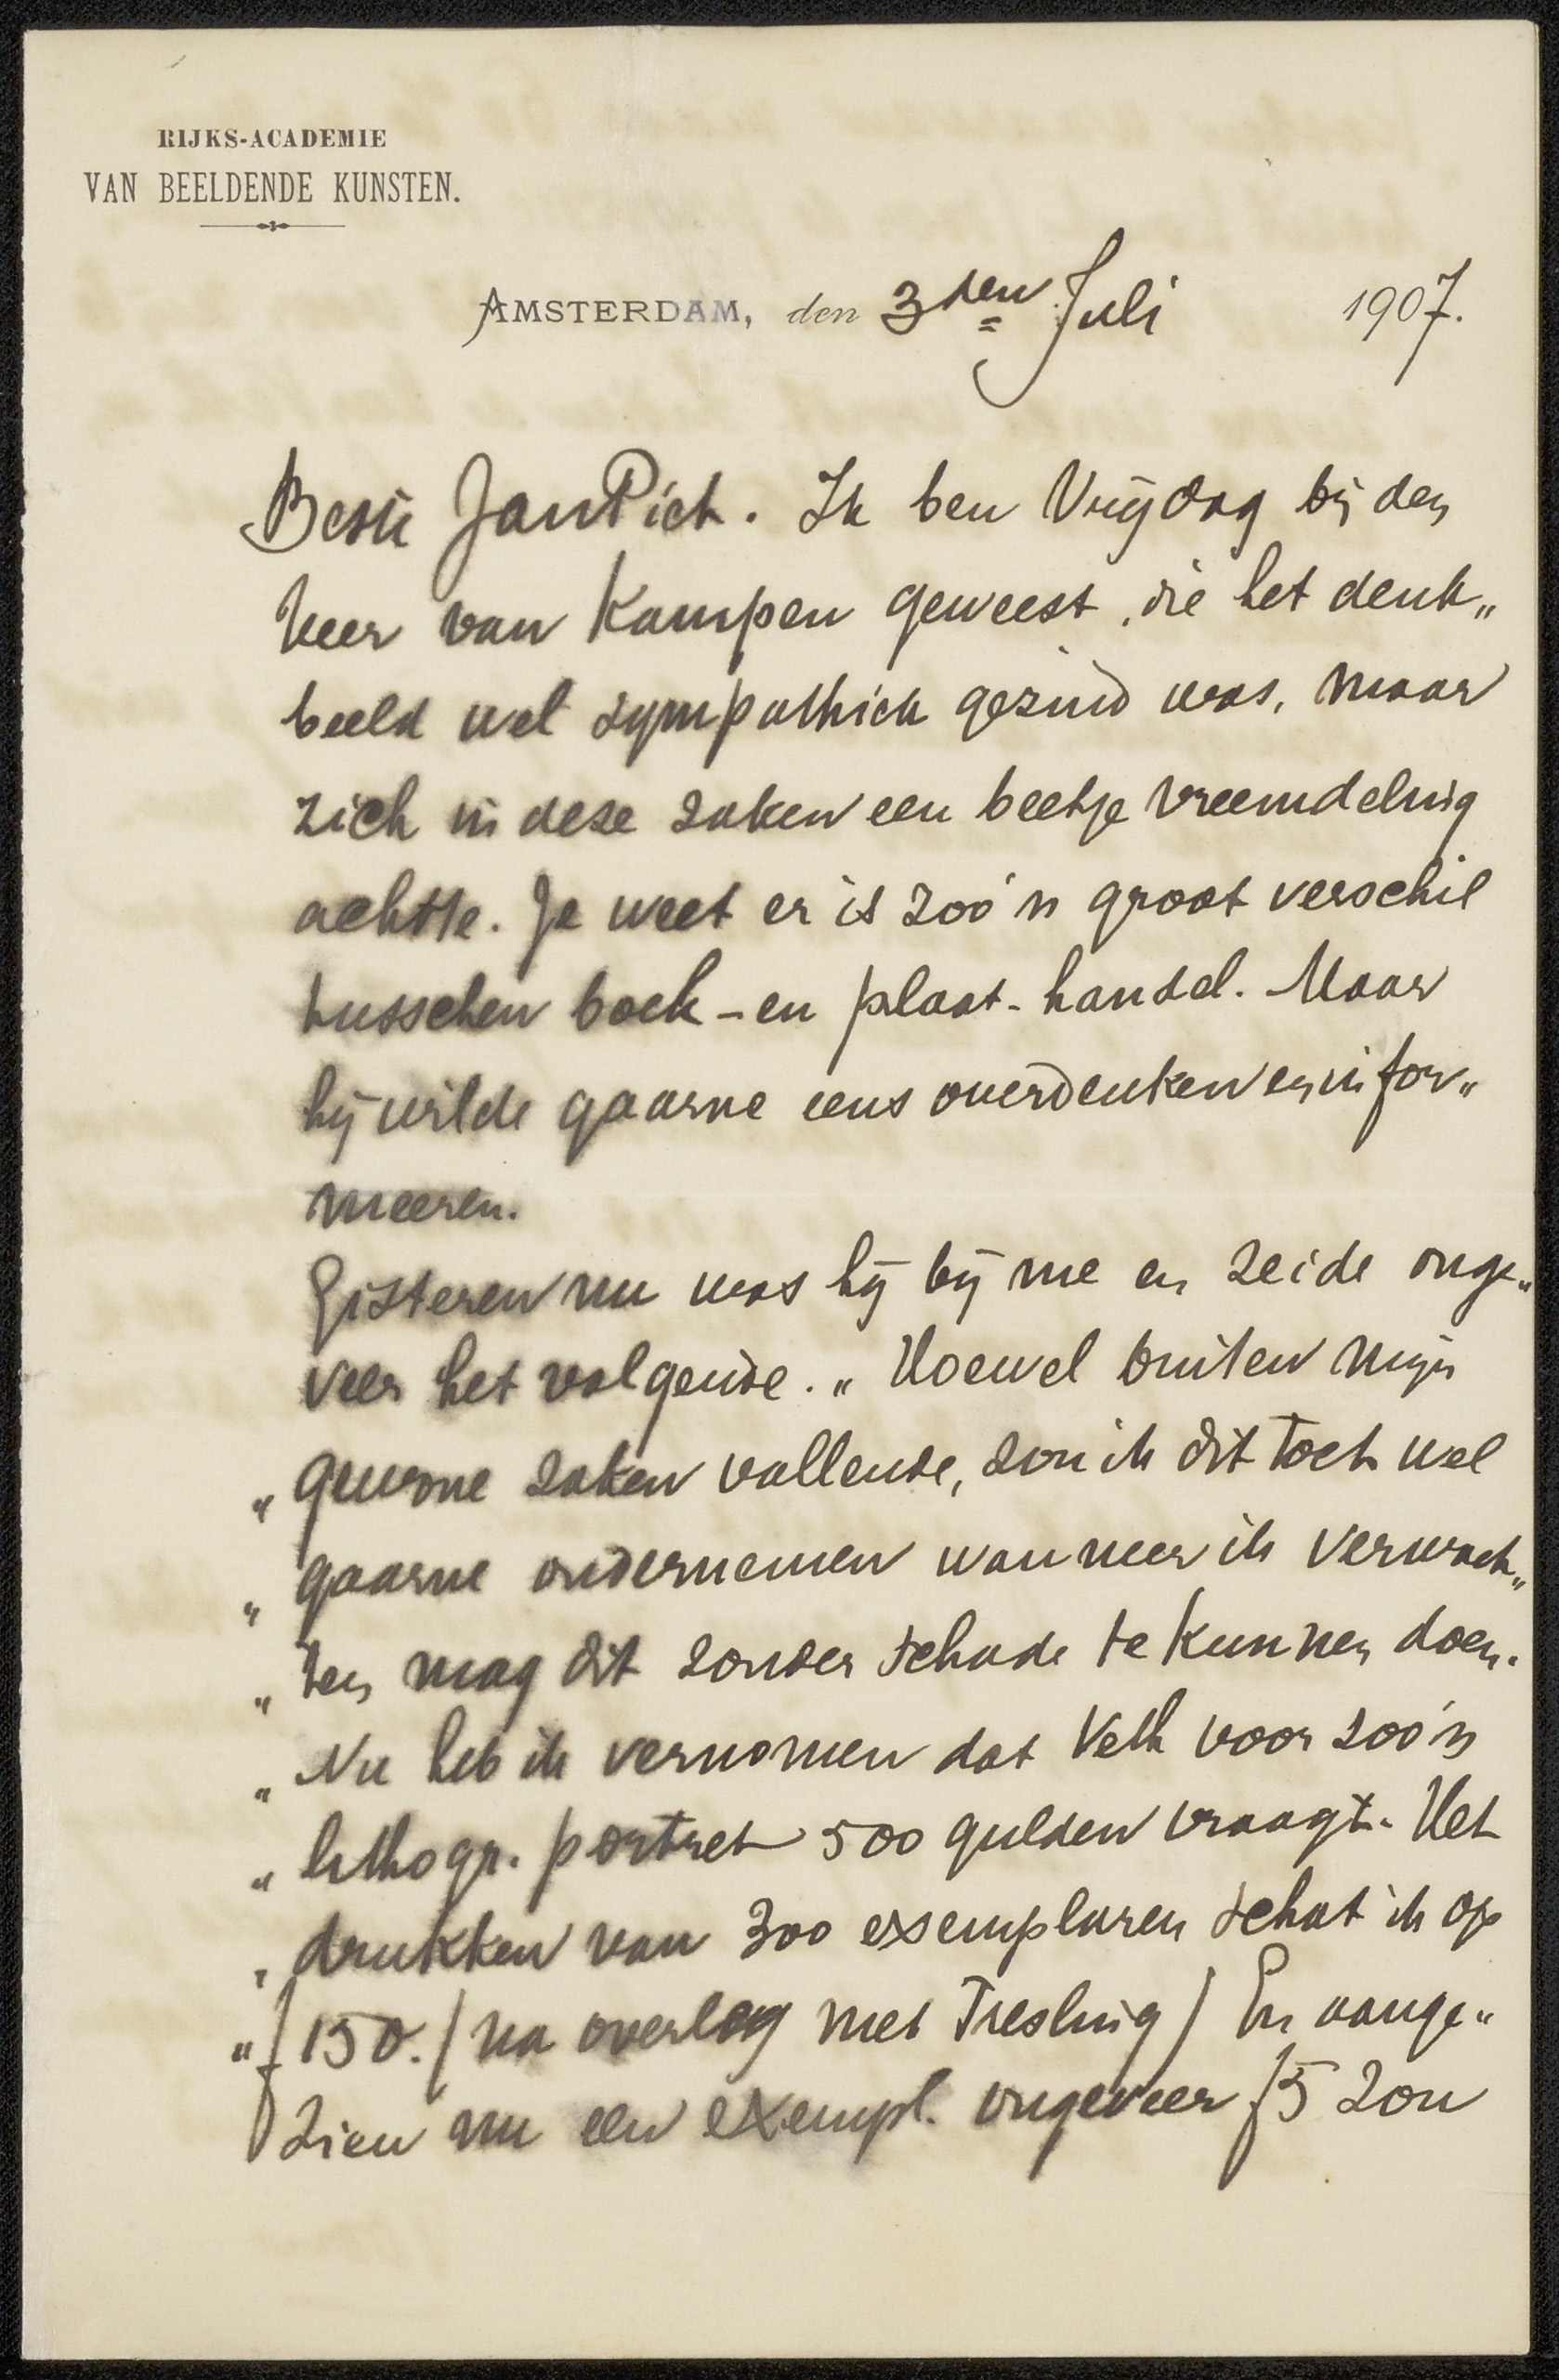 RIJKS-ACADEMIE
VAN BEELDENDE KUNSTEN.
AMSTERDAM, den 3den Juli 1907.
Beste Jan Piet. Ik ben Vrijdag bij den
heer van Kampen geweest, die het denk„
beeld wel sympathiek gezind was, maar
zich in deze zaken een beetje vreemdeling
achtte. Je weet er is zoo'n groot verschil
tusschen boek-en plaat-handel. Maar
hij wilde gaarne eens overdenken en infor„
meeren.
Gisteren nu was hij bij me en zeide onge„
veer het volgende. „Hoewel buiten mijn
„gewone zaken vallende, zou ik dit toch wel
„gaarne ondernemen wanneer ik verwach„
„ten mag dit zonder schade te kunnen doen.
„Nu heb ik vernomen dat Veth voor zoo'n
„lithogr. portret 500 gulden vraagt. Het
„drukken van 300 exemplaren schat ik op
„f150. / na overleg met Tresling / En aange„
zien nu een exempl. ongeveer f5 zou